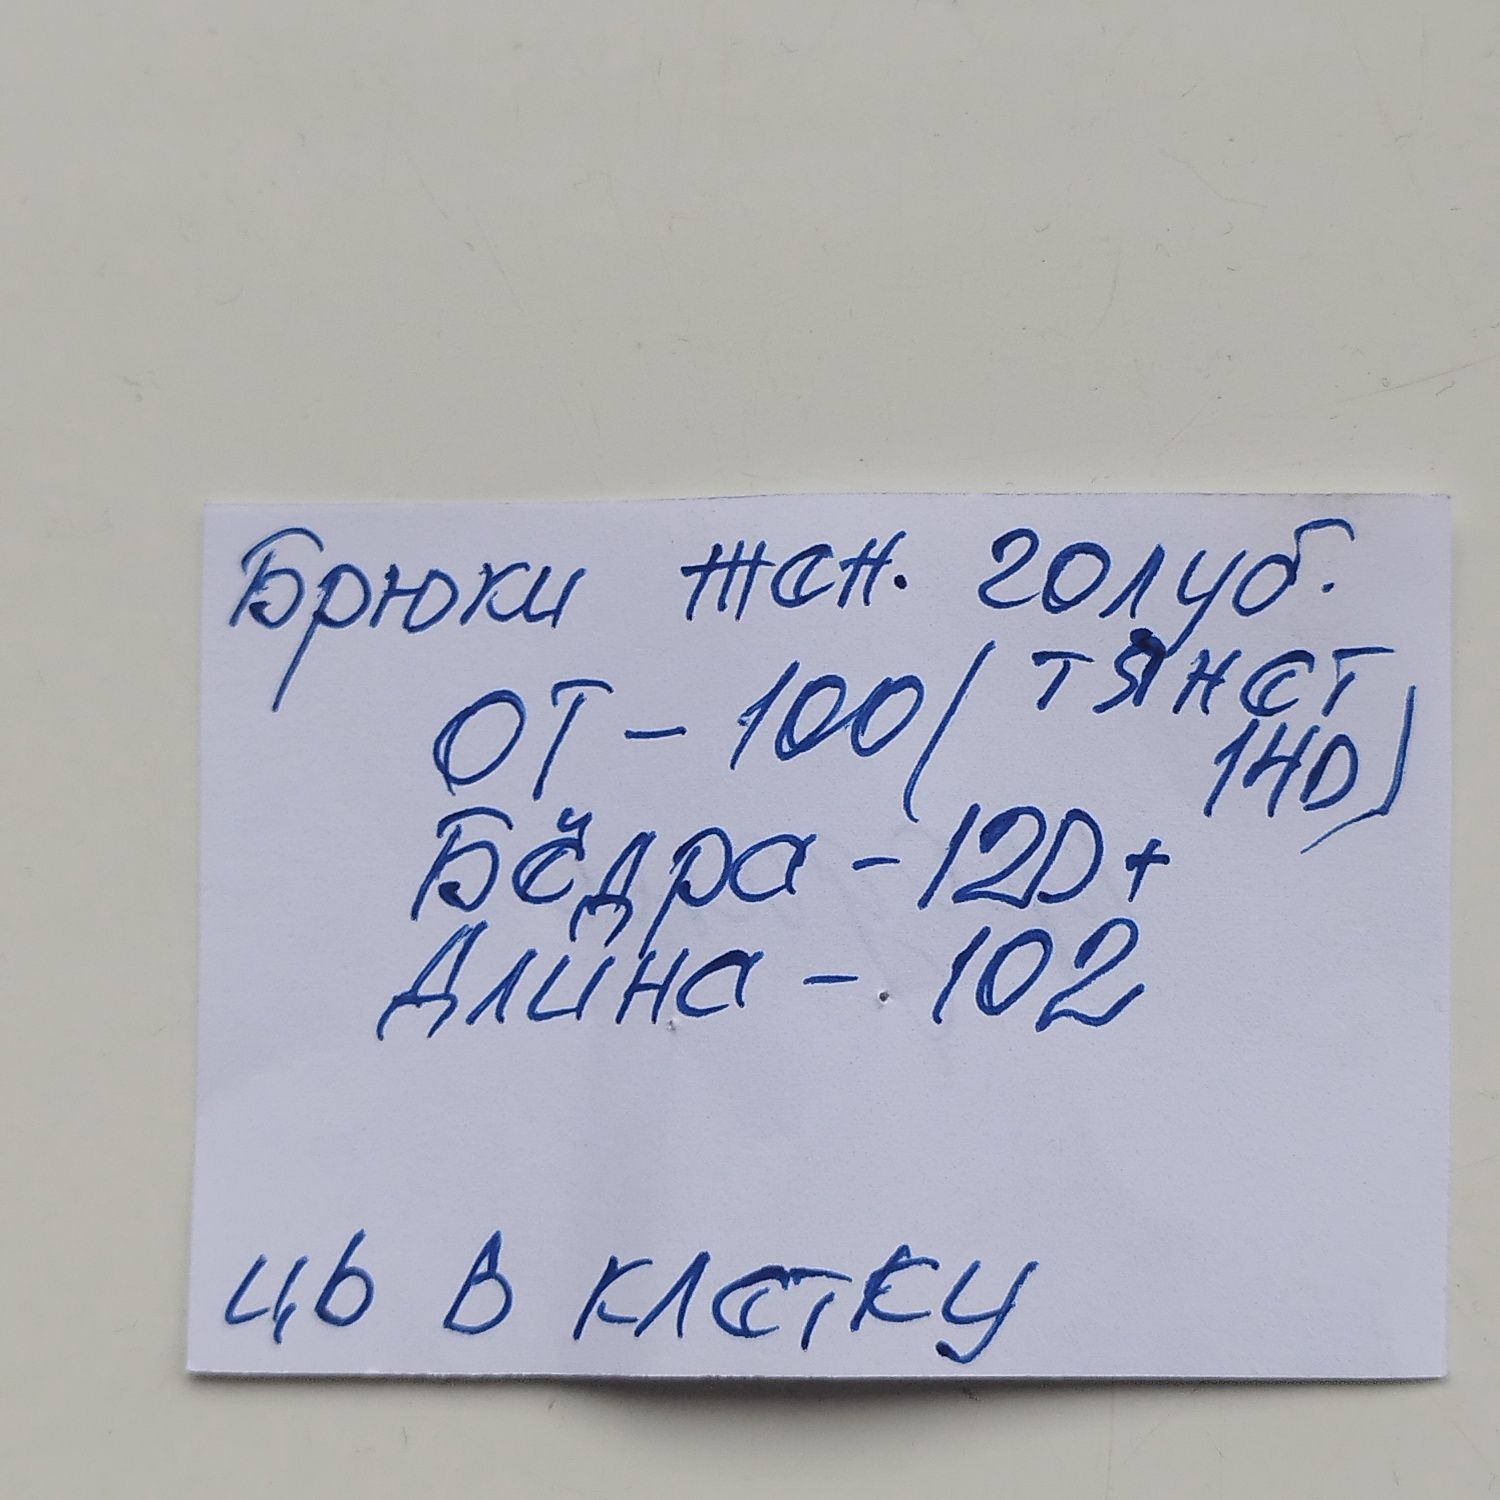 Брюки жен. голуб.
ОТ - 100 (тянет
140)
Бёдра - 120+
Длина - 102
в клетку